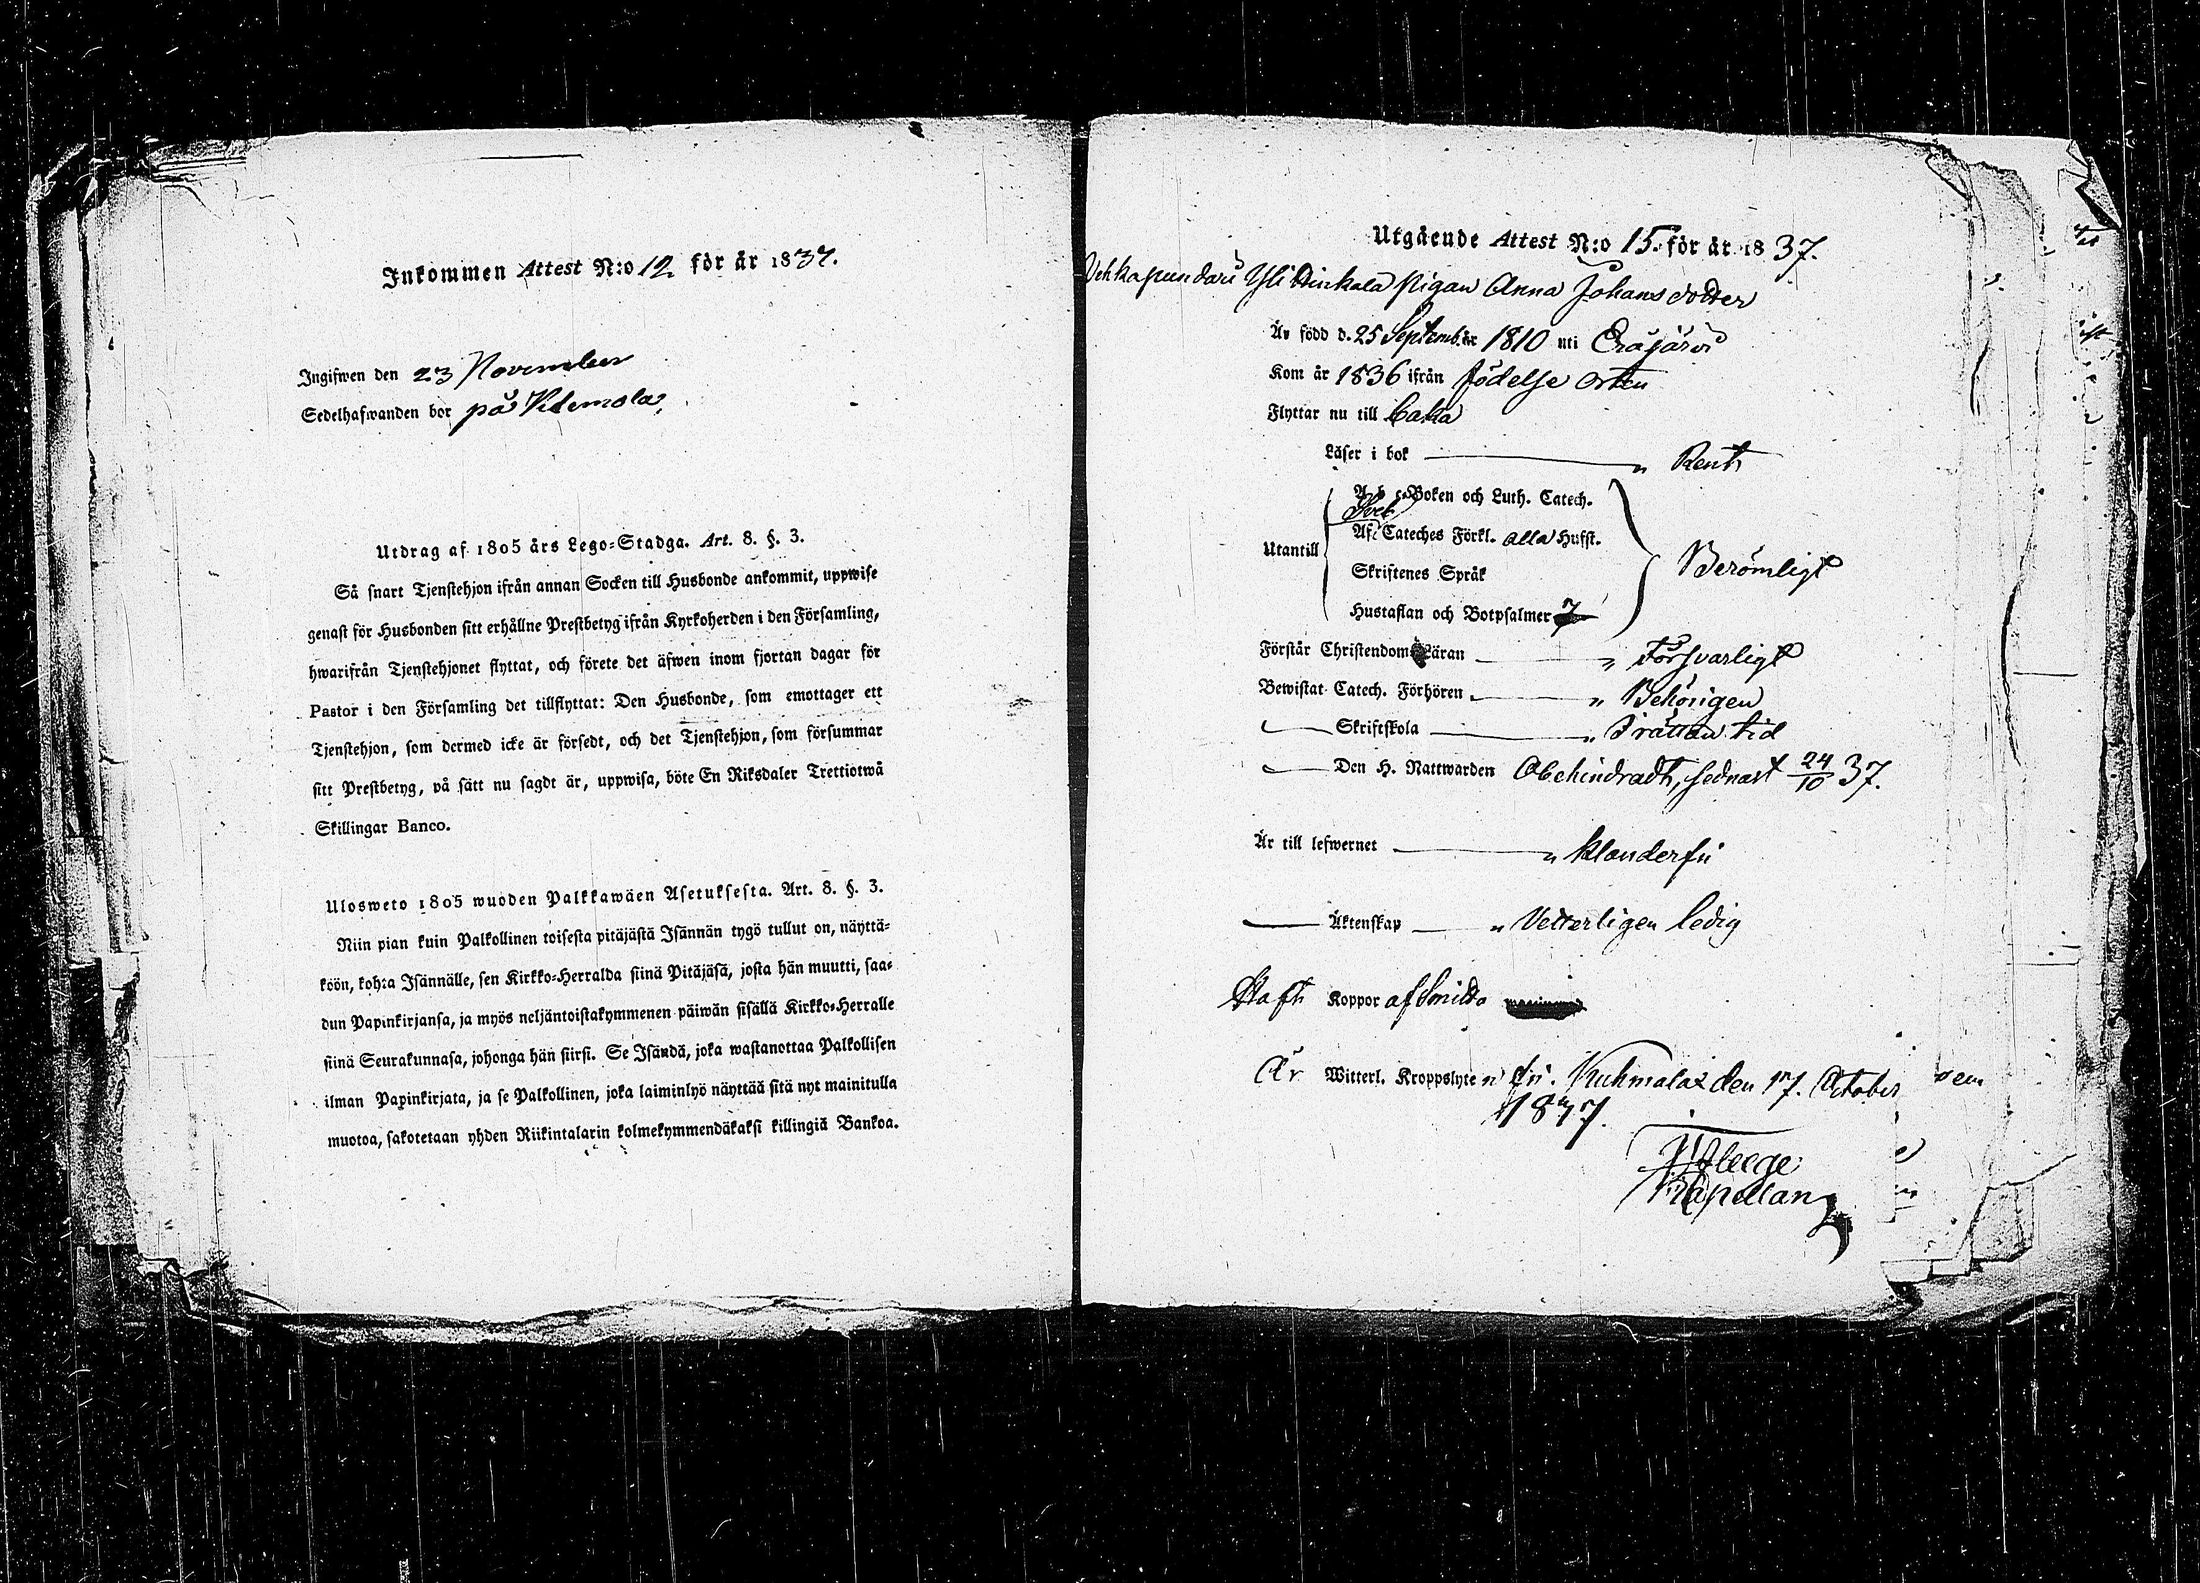 Inkommen Attest N:o 12 för år 1837.
Ingifwen den 23 November
Sedelhafwanden bor på
Utdrag af 1805 års Lego=Stadga. Art. 8. §. 3.
Så snart Tjenstehjon ifrån annan Socken till Husbonde ankommit, uppwise
genast för Husbonden sitt erhållne Prestbetyg ifrån Kyrkoherden i den Församling,
hwarifrån Tjenstehjonet flyttat, och förete det äfwen inom fjortan dagar för
Pastor i den Församling det tillflyttat: Den Husbonde, som emottager ett
Tjenstehjon, som dermed icke är försedt, och det Tjenstehjon, som försummar
sitt Prestbetyg, på sätt nu sagdt är, uppwisa, böte En Riksdaler Trettiotwå
Skillingar Banco.
Ulosweto 1805 wuoden Palkkawäen Asetuksesta. Art. 8. §. 3.
Niin pian kuin Palkollinen toisesta pitäjästä Isännän tygö tullut on, näyttä-
köön, kohta Isännälle, sen Kirkko=Herralda siinä Pitäjäsä, josta hän muutti, saa-
dun Papinkirjansa, ja myös neljäntoistakymmenen päiwän sisällä Kirkko=Herralle
siinä Seurakunnasa, johonga hän siirsi. Se Isändä, joka wastanottaa Palkollisen
ilman Papinkirjata, ja se Palkollinen, joka laiminlyö näyttää sitä nyt mainitulla
muotoa, sakotetaan yhden Riikintalarin kolmekymmendäkaksi killingiä Bankoa.
Utgående Attest N:o 15. för år 1837.
Yli pigan Anna Johansdotter
Är född d. 25 September 1810 uti Eräjärvi
Kom år 1836 ifrån födelse orten
Flyttar nu till
Läser i bok " Rent
A b c=Boken och Luth. Catech.
Sveb
Utantill Af Cateches Förkl. alla Hufst.
Skriftenes Språk Berömligt
Hustaflan och Botpsalmer 7
Förstår Christendoms Läran " Försvarligt
Bewistat Catech. Förhören " Behörigen
Skriftskola " I rättan tid
Den H. Nattwarden Obehindradt, sednast 24/10 37.
Är till lefwernet " klanderfri
Äktenskap " Vetterligen ledig
Haft Koppor af Smitto
Är Witterl. Kroppslyte n fri. Kuhmalax den 17. October
18 7.
Kapellan